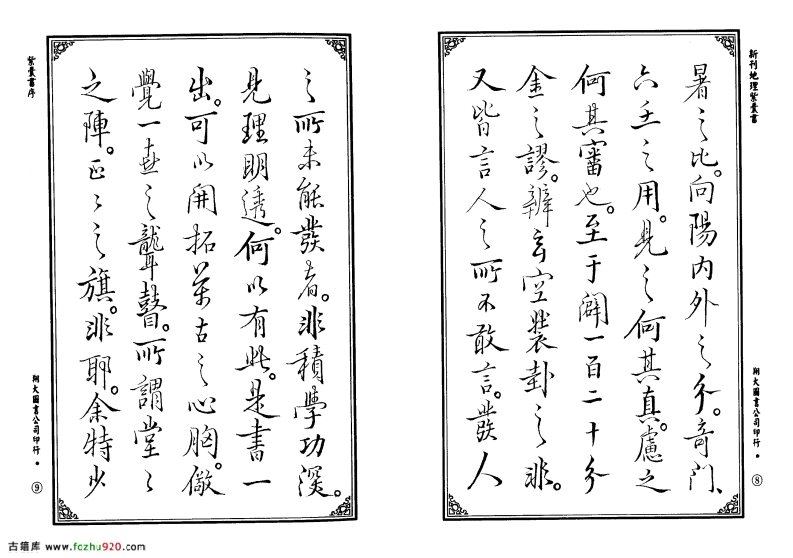 新刊地理紫囊書
暑之比。向陽內外之分。奇門、
六壬之用。見之何其真。慮之
何其審也。至于闢一百二十分
金之謬。辨玄空裝卦之非。
又皆言人之所不敢言。發人
翔大圖書公司印行・
⑧
之所未能發者。非積學功深。
見理明透。何以有此。是書一
出。可以開拓萬古之心胸。儆
覺一世之聾瞽。所謂堂々
之陣。正々之旗。非耶。余特少
紫囊書序
翔大圖書公司印行・
⑨
古籍库 www.fczhu920.com